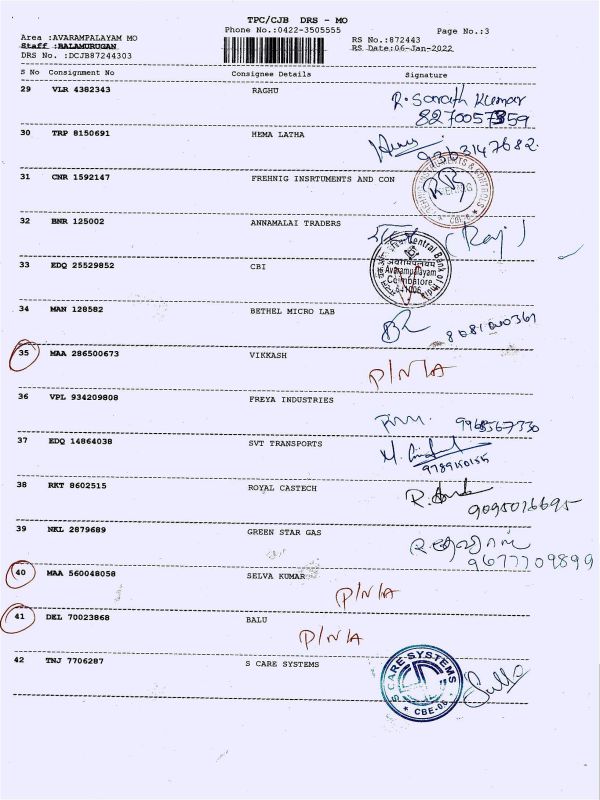 TPC/CJB DRS - MO
Phone No.:0422-3505555
Page No.:3
Area :AVARAMPALAYAM MO
RS No.:872443
Staff :BALAMURUGAN
RS Date:06-Jan-2022
DRS No. :DCJB87244303
S No Consignment No Consignee Details Signature
29 VLR 4382343 RAGHU R. Sarath Kumar
8270057359
30 TRP 8150691 HEMA LATHA Hema
9363147682
31 CNR 1592147 FREHNIG INSRTUMENTS AND CON
32 BNR 125002 ANNAMALAI TRADERS (Raj)
33 EDQ 25529852 CBI Central Bank of India
Avarampalayam
Coimbatore
34 MAN 128582 BETHEL MICRO LAB
35 MAA 286500673 VIKKASH P/N/A
36 VPL 934209808 FREYA INDUSTRIES
37 EDQ 14864038 SVT TRANSPORTS
9789150155
38 RKT 8602515 ROYAL CASTECH
9095016695
39 NKL 2879689 GREEN STAR GAS
9677709899
40 MAA 560048058 SELVA KUMAR P/N/A
41 DEL 70023868 BALU P/N/A
42 TNJ 7706287 S CARE SYSTEMS S CARE SYSTEMS
* CBE-06 *